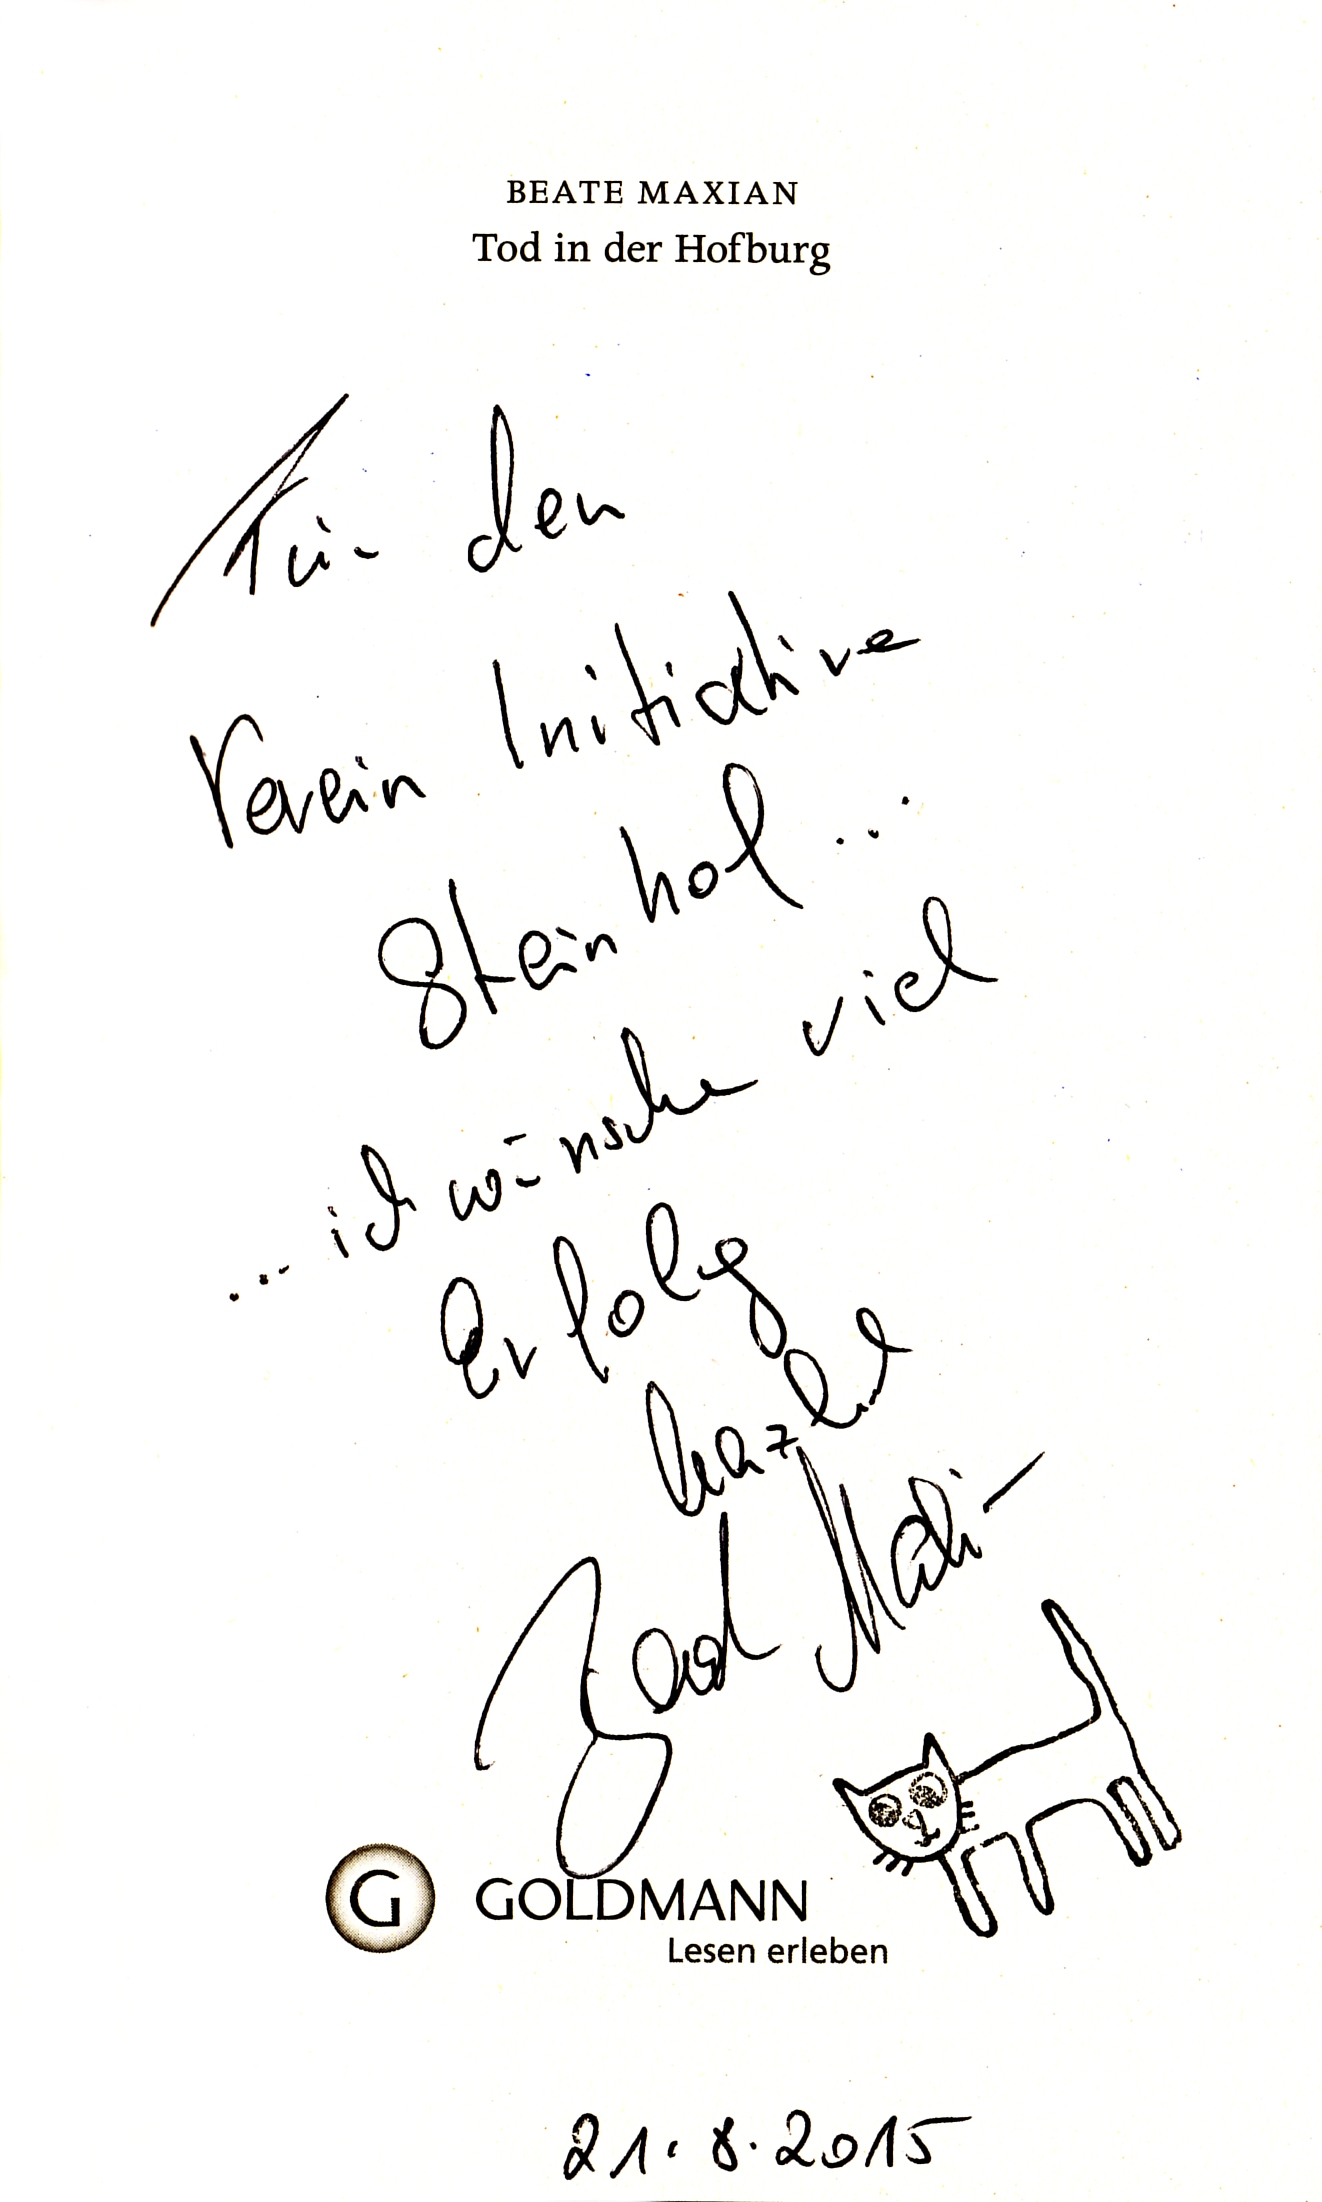 BEATE MAXIAN
Tod in der Hofburg
Für den
Verein Initiative
Steinhof ...
... ich wünsche viel
Erfolg
herzlichst
Beate Maxian
G GOLDMANN
Lesen erleben
21.8.2015